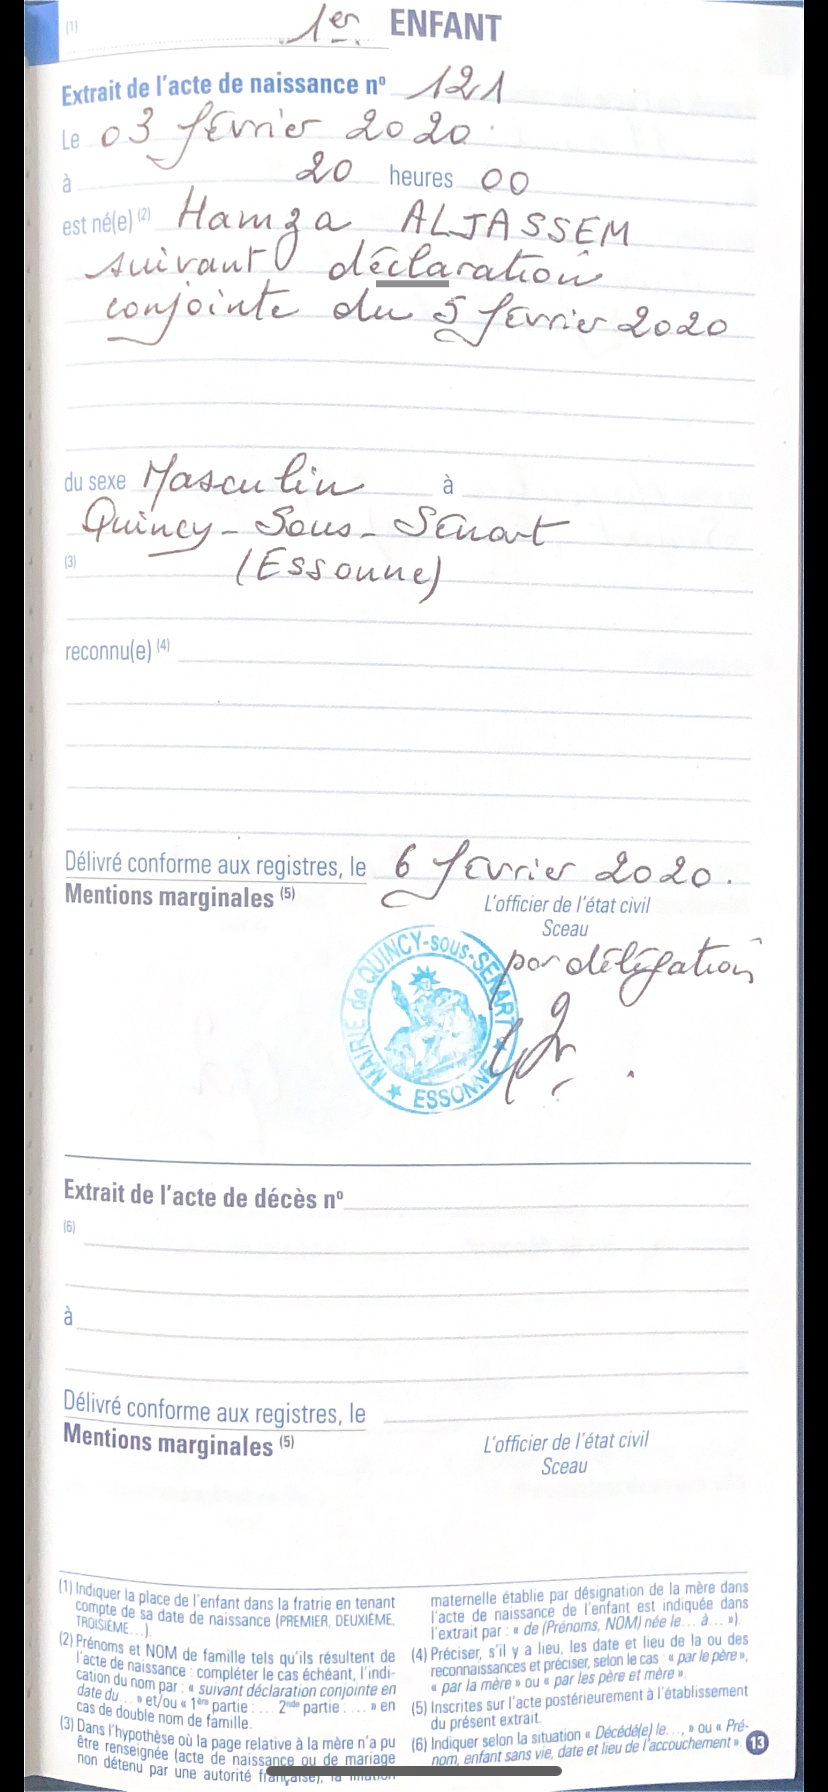 (1) 1er ENFANT
Extrait de l'acte de naissance nº 121
Le 03 février 2020
à 20 heures 00
est né(e) (2) Hamza ALJASSEM
suivant déclaration
conjointe du 5 février 2020
du sexe Masculin à
Quincy-Sous-Sénart
(3) (Essonne)
reconnu(e) (4)
Délivré conforme aux registres, le 6 février 2020.
Mentions marginales (5)
L'officier de l'état civil
Sceau
par délégation
MAIRIE de QUINCY-sous-SENART
★ ESSONNE ★
Extrait de l'acte de décès nº
(6)
à
Délivré conforme aux registres, le
Mentions marginales (5)
L'officier de l'état civil
Sceau
(1) Indiquer la place de l'enfant dans la fratrie en tenant
compte de sa date de naissance (PREMIER, DEUXIÈME,
TROISIÈME...).
(2) Prénoms et NOM de famille tels qu'ils résultent de
l'acte de naissance : compléter le cas échéant, l'indi-
cation du nom par : « suivant déclaration conjointe en
date du... » et/ou « 1ère partie : .... 2nde partie .... » en
cas de double nom de famille.
(3) Dans l'hypothèse où la page relative à la mère n'a pu
être renseignée (acte de naissance ou de mariage
non détenu par une autorité française), la filiation
maternelle établie par désignation de la mère dans
l'acte de naissance de l'enfant est indiquée dans
l'extrait par : « de (Prénoms, NOM) née le... à... »).
(4) Préciser, s'il y a lieu, les date et lieu de la ou des
reconnaissances et préciser, selon le cas : « par le père »,
« par la mère » ou « par les père et mère ».
(5) Inscrites sur l'acte postérieurement à l'établissement
du présent extrait.
(6) Indiquer selon la situation « Décédé(e) le..., » ou « Pré-
nom, enfant sans vie, date et lieu de l'accouchement ».
13